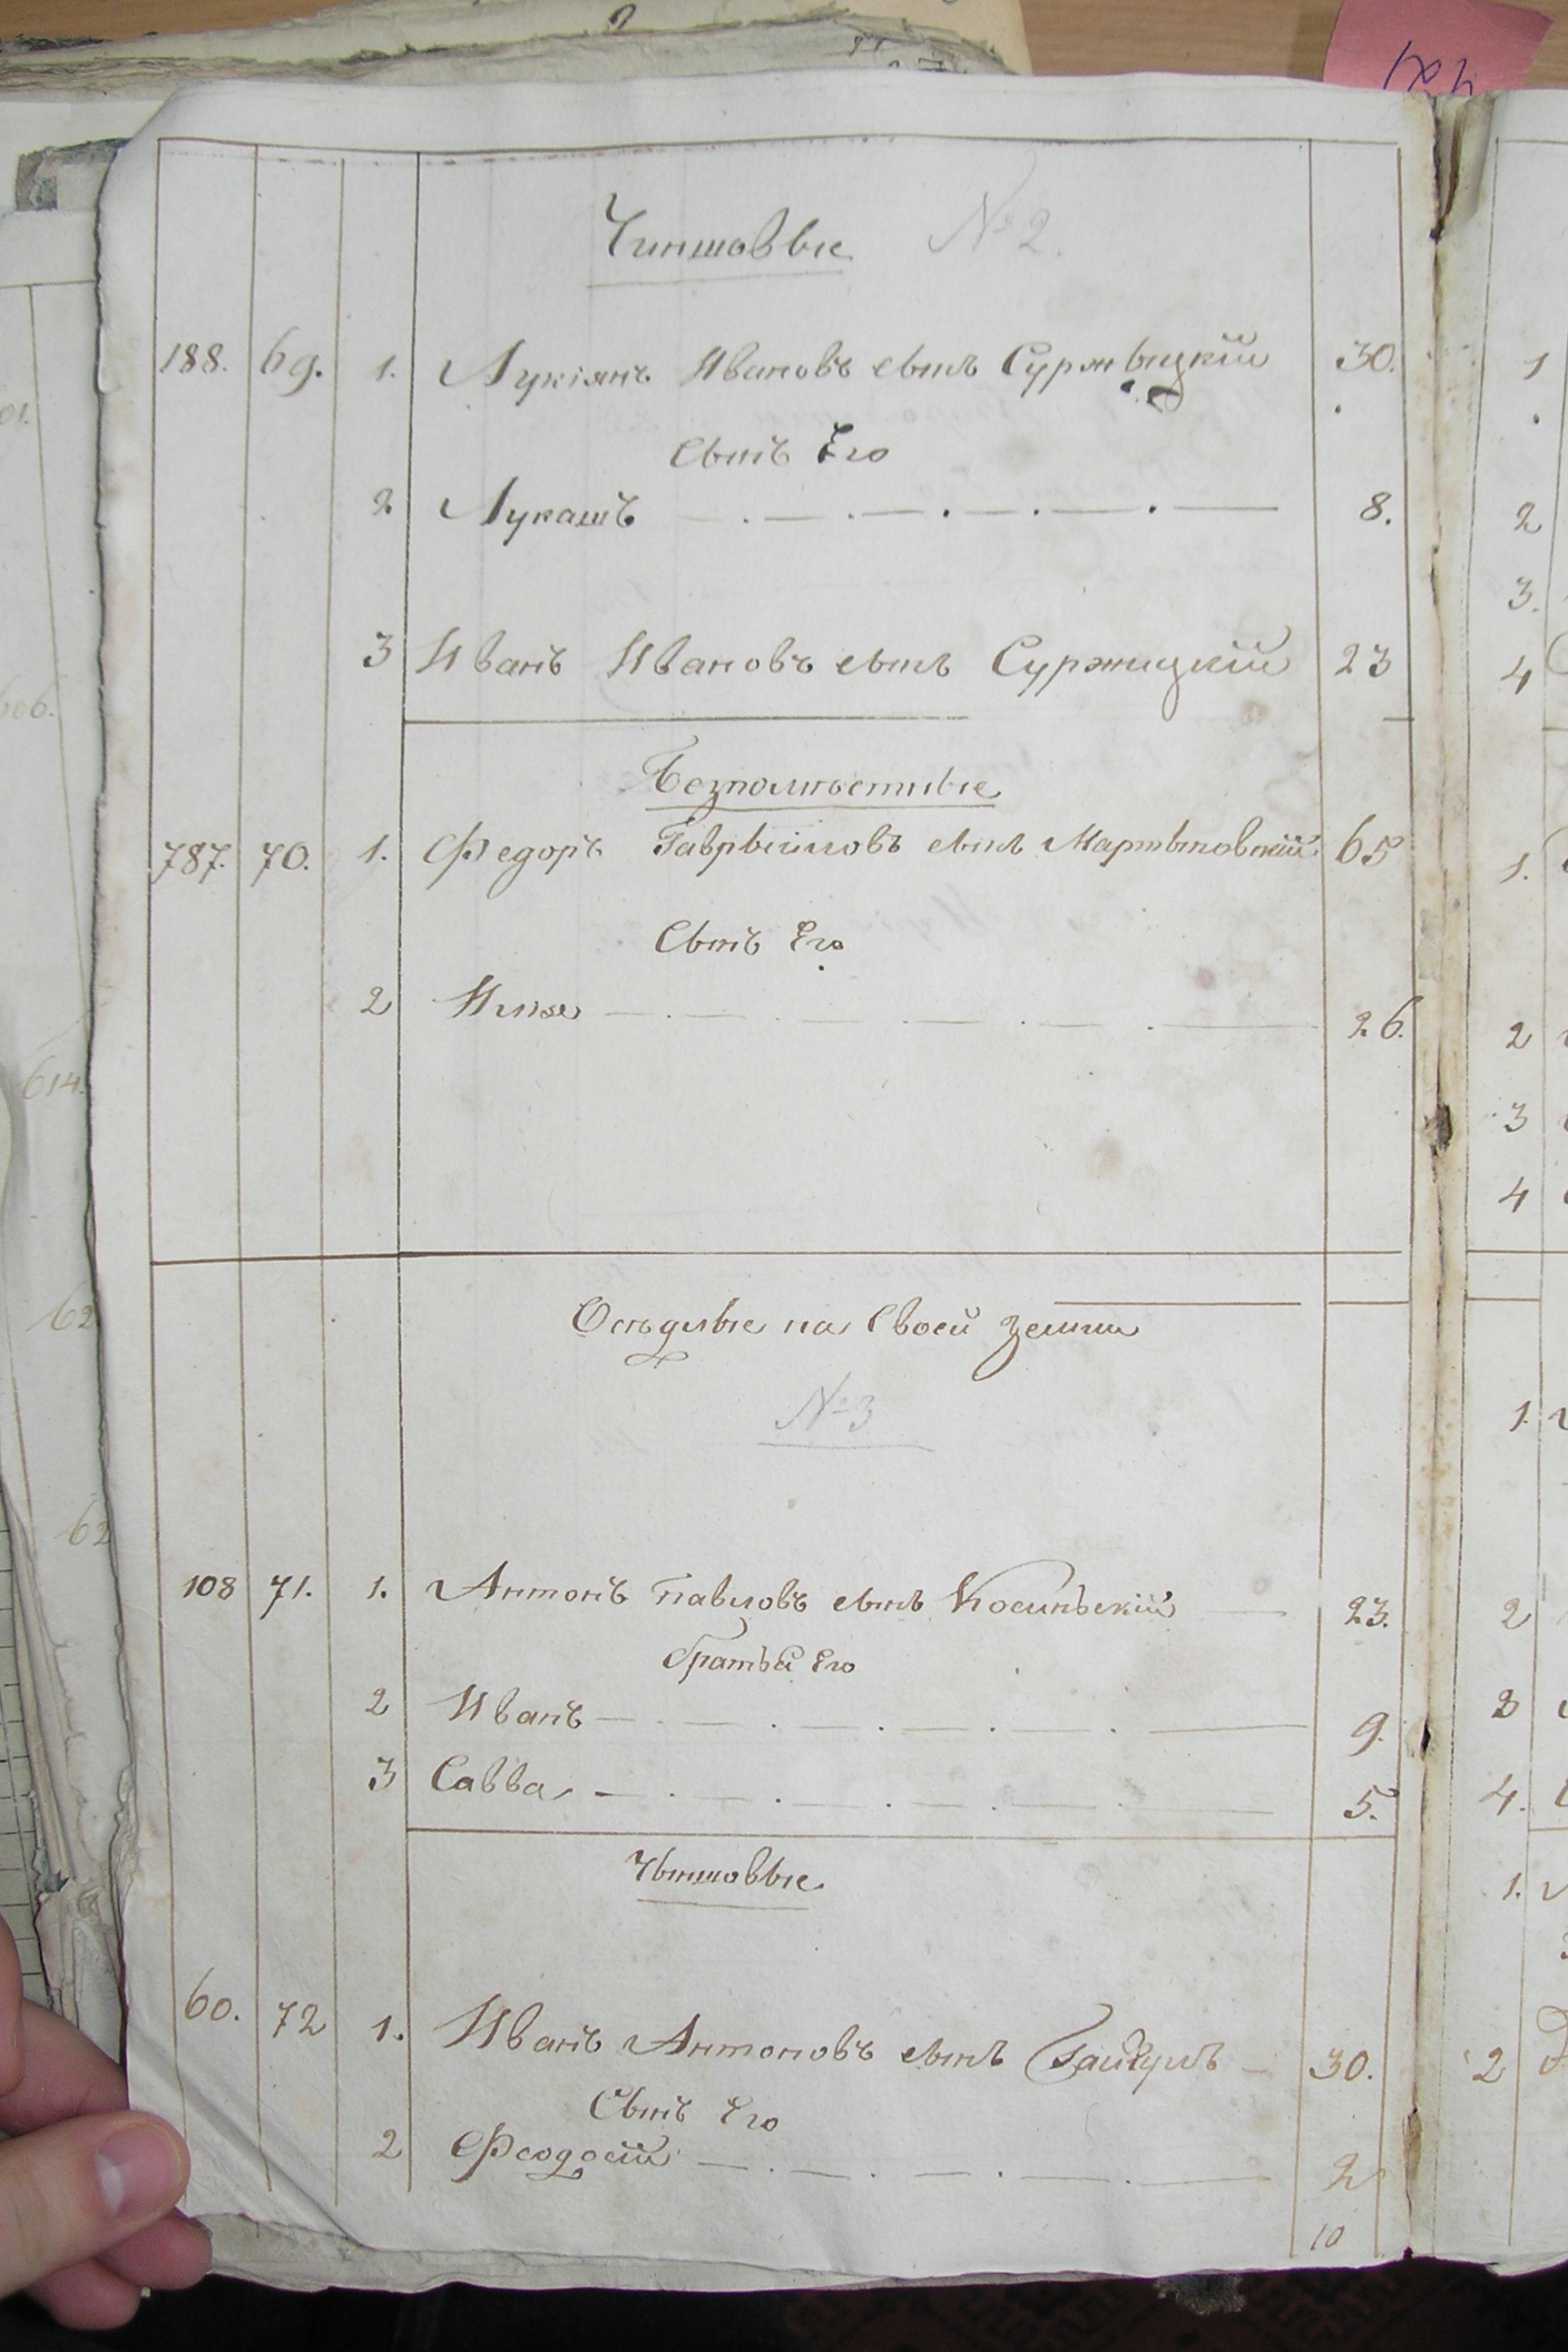 Чиншовые № 2.
188. 69. 1. Лукіянъ Ивановъ сынъ Суржыцкій 30.
Сынъ Его
2 Лукашъ 8.
3 Иванъ Ивановъ сынъ Суржицкій 23
Безпомѣстные
787. 70. 1. Федоръ Гаврыиловъ сынъ Мартыновскій 65
Сынъ Его
2 Илья 26.
Осѣдлые на Своей Земли
№ 3
108 71. 1. Антонъ Павловъ сынъ Косиньскій 23.
братья Его
2 Иванъ 9.
3 Савва 5.
Чыншовые
60. 72 1. Иванъ Антоновъ сынъ 30.
Сынъ Его
2 Феодосій 2
10
1
2
3.
4
1.
2
3
4
1.
2
3
4.
1.
2